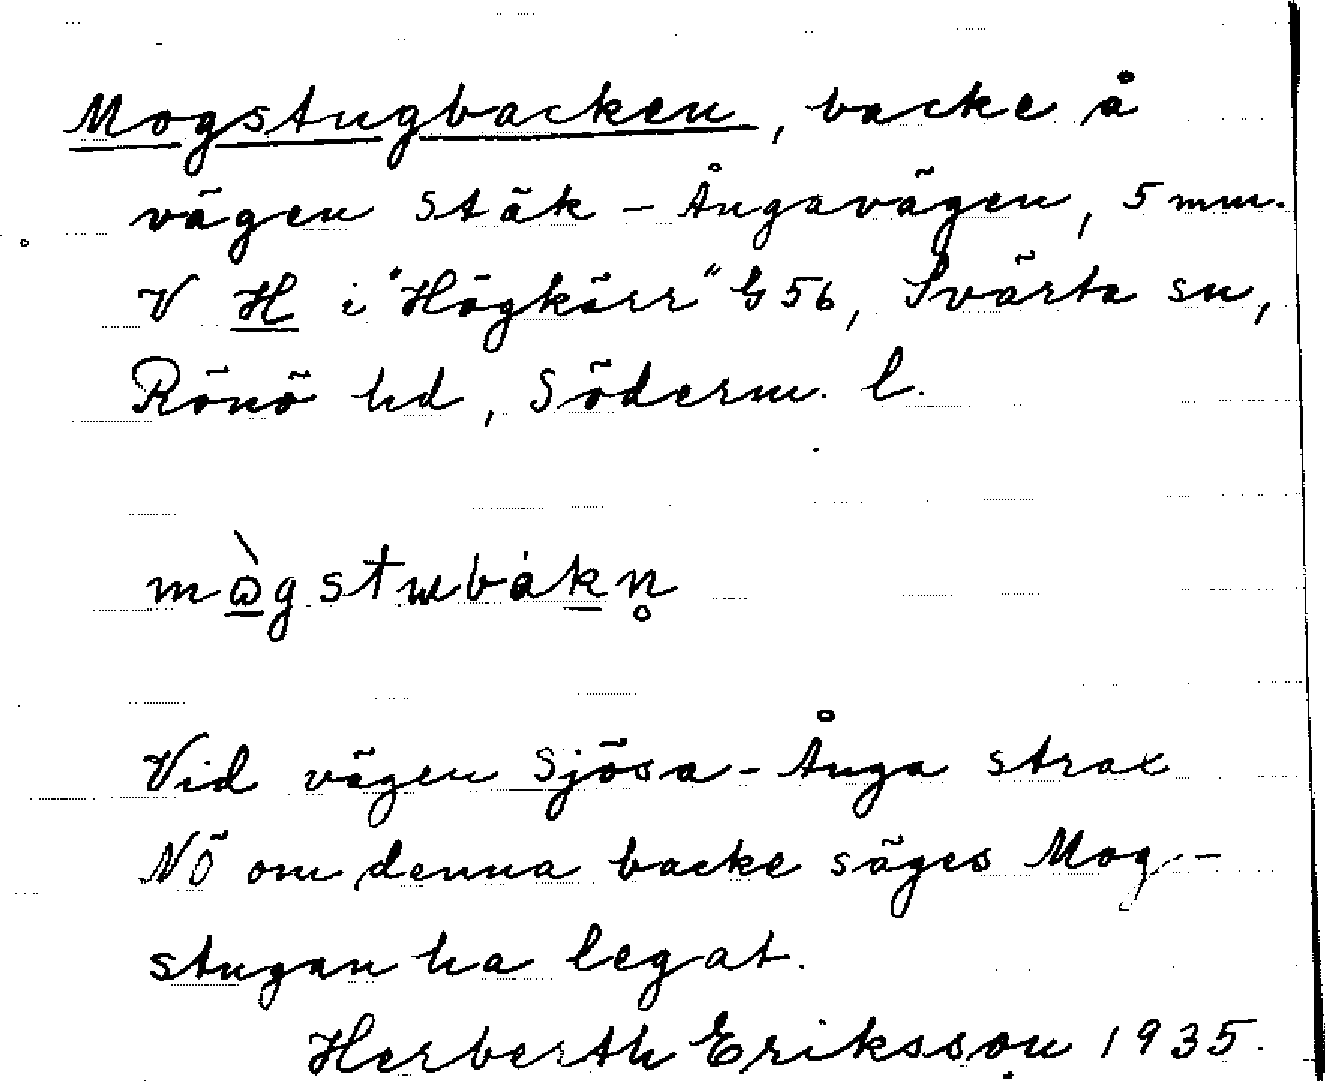 Mogstugbacken, backe å
vägen Stäk - Ångavägen, 5 mm.
V H i "Högkärr" G 56, Svärta sn,
Rönö hd, Söderm. l.
mɷ̀gstuubàkn̥
Vid vägen Sjösa - Ånga strax
NÖ om denna backe säges Mog-
stugan ha legat.
Herberth Eriksson 1935.